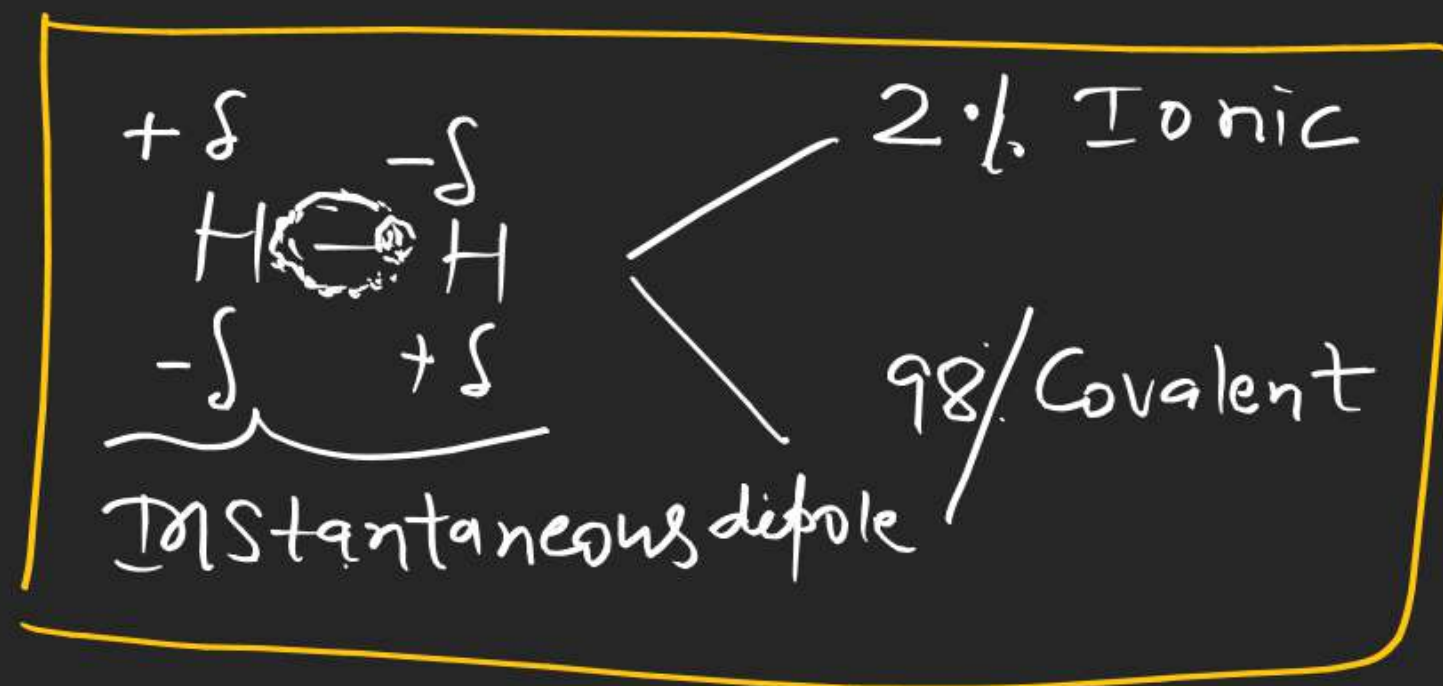 +δ -δ
H—H
-δ +δ
Instantaneous dipole
2% Ionic
98% Covalent